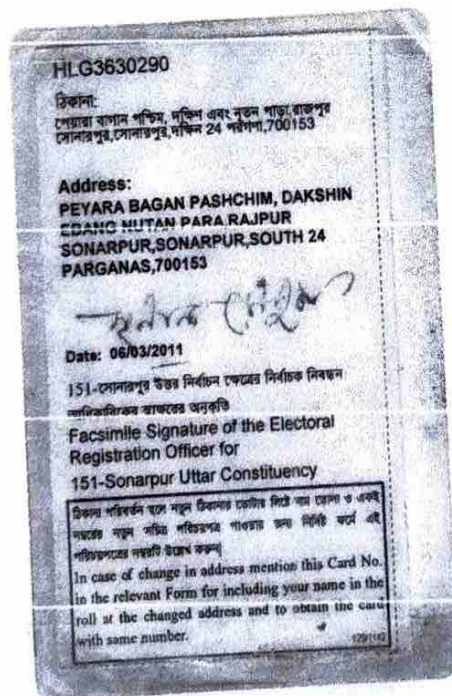 HLG3630290
ঠিকানা:
পেয়ারা বাগান পশ্চিম, দক্ষিণ এবং নুতন পাড়া,রাজপুর
সোনারপুর,সোনারপুর,দক্ষিন 24 পরগণা,700153
Address:
PEYARA BAGAN PASHCHIM, DAKSHIN
EBANG NUTAN PARA,RAJPUR
SONARPUR,SONARPUR,SOUTH 24
PARGANAS,700153
Date: 06/03/2011
151-সোনারপুর উত্তর নির্বাচন ক্ষেত্রের নির্বাচক নিবন্ধন
আধিকারিকের স্বাক্ষরের অনুকৃতি
Facsimile Signature of the Electoral
Registration Officer for
151-Sonarpur Uttar Constituency
ঠিকানা পরিবর্তন হলে নতুন ঠিকানার ভোটার লিষ্টে নাম তোলা ও একই
নম্বরের নতুন সচিত্র পরিচয়পত্র পাওয়ার জন্য নির্দিষ্ট ফর্মে এই
পরিচয়পত্রের নম্বরটি উল্লেখ করুন
In case of change in address mention this Card No.
in the relevant Form for including your name in the
roll at the changed address and to obtain the card
with same number.